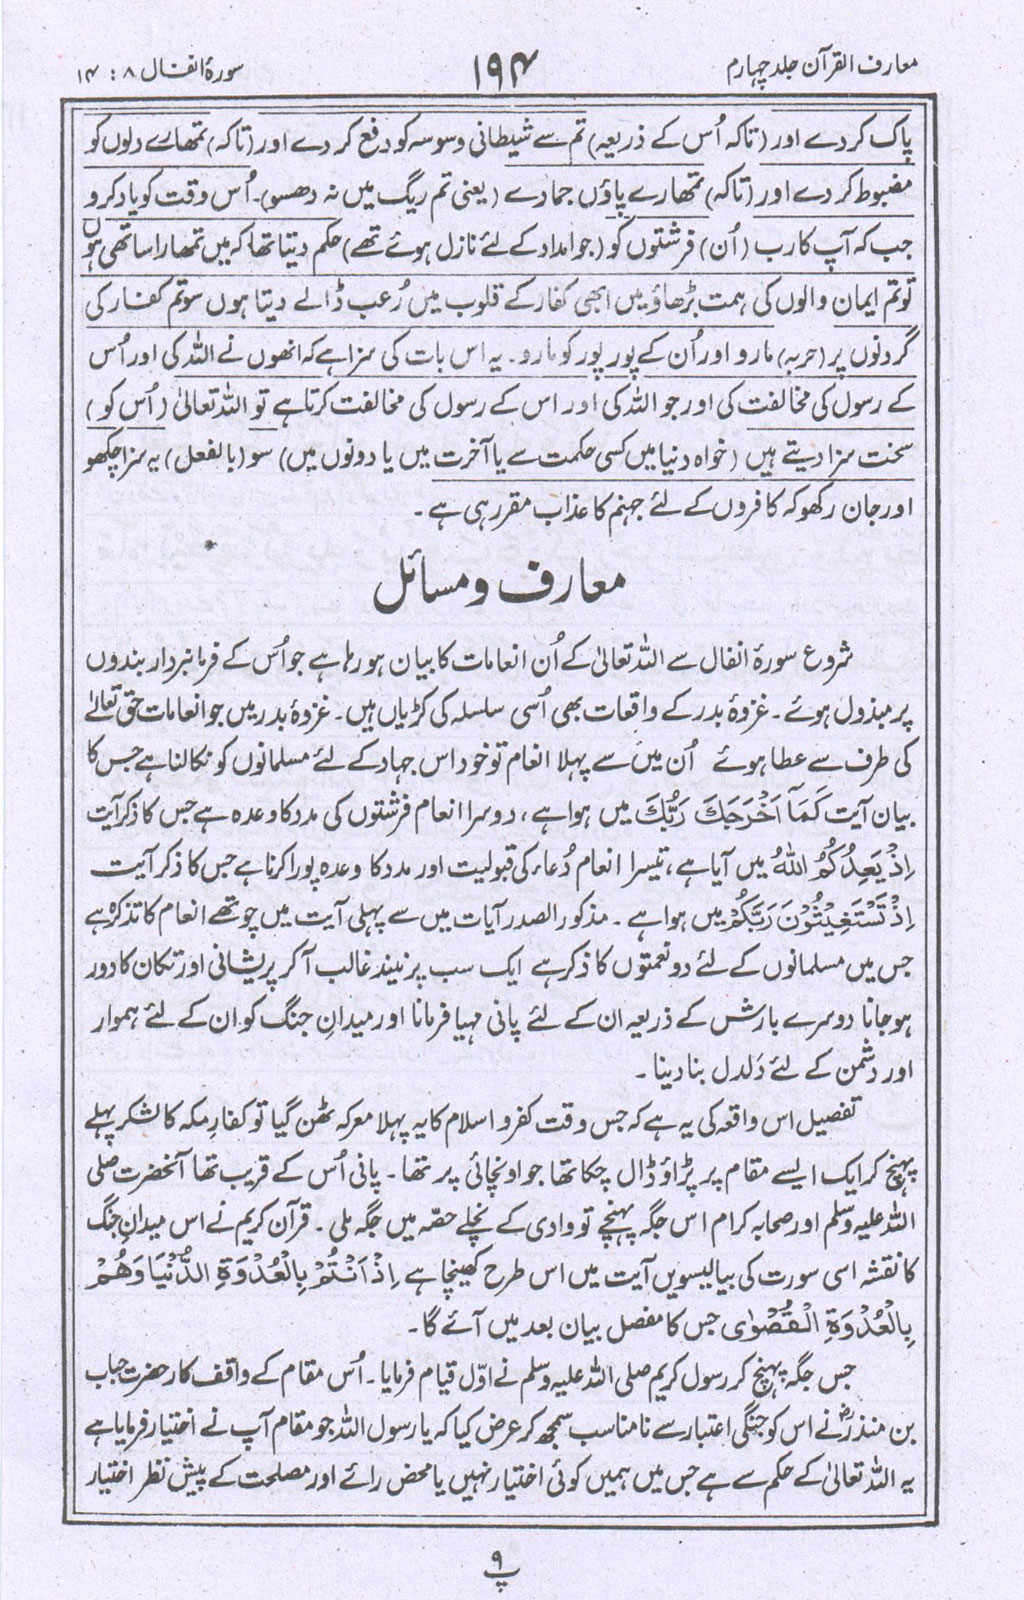 معارف القرآن جلد چہارم
۱۹۴
سورۂ انفال ۸ : ۱۴
پاک کر دے اور (تاکہ اُس کے ذریعہ) تم سے شیطانی وسوسہ کو دفع کر دے اور (تاکہ) تمھارے دلوں کو
مضبوط کر دے اور (تاکہ) تمھارے پاؤں جما دے (یعنی تم ریگ میں نہ دھسو)۔ اُس وقت کو یاد کرو
جب کہ آپ کا رب (اُن) فرشتوں کو (جو امداد کے لئے نازل ہوئے تھے) حکم دیتا تھا کہ میں تمھارا ساتھی ہوں
تو تم ایمان والوں کی ہمت بڑھاؤ میں ابھی کفار کے قلوب میں رُعب ڈالے دیتا ہوں سو تم کفار کی
گردنوں پر (حربہ) مارو اور اُن کے پور پور کو مارو۔ یہ اس بات کی سزا ہے کہ انھوں نے اللہ کی اور اُس
کے رسول کی مخالفت کی اور جو اللہ کی اور اس کے رسول کی مخالفت کرتا ہے تو اللہ تعالیٰ (اُس کو)
سخت سزا دیتے ہیں (خواہ دنیا میں کسی حکمت سے یا آخرت میں یا دونوں میں) سو (بالفعل) یہ سزا چکھو
اور جان رکھو کہ کافروں کے لئے جہنم کا عذاب مقرر ہی ہے۔
معارف و مسائل
شروع سورۂ انفال سے اللہ تعالیٰ کے اُن انعامات کا بیان ہو رہا ہے جو اُس کے فرمانبردار بندوں
پر مبذول ہوئے۔ غزوۂ بدر کے واقعات بھی اُسی سلسلہ کی کڑیاں ہیں۔ غزوۂ بدر میں جو انعامات حق تعالےٰ
کی طرف سے عطا ہوئے اُن میں سے پہلا انعام تو خود اس جہاد کے لئے مسلمانوں کو نکالنا ہے جس کا
بیان آیت كَمَآ اَخْرَجَكَ رَبُّكَ میں ہوا ہے، دوسرا انعام فرشتوں کی مدد کا وعدہ ہے جس کا ذکر آیت
اِذْ يَعِدُكُمُ اللّٰهُ میں آیا ہے، تیسرا انعام دُعاء کی قبولیت اور مدد کا وعدہ پورا کرنا ہے جس کا ذکر آیت
اِذْ تَسْتَغِيْثُوْنَ رَبَّكُمْ میں ہوا ہے۔ مذکور الصدر آیات میں سے پہلی آیت میں چوتھے انعام کا تذکرہ ہے
جس میں مسلمانوں کے لئے دو نعمتوں کا ذکر ہے ایک سب پر نیند غالب آ کر پریشانی اور تکان کا دور
ہو جانا دوسرے بارش کے ذریعہ ان کے لئے پانی مہیا فرمانا اور میدانِ جنگ کو ان کے لئے ہموار
اور دشمن کے لئے دَلدل بنا دینا۔
تفصیل اس واقعہ کی یہ ہے کہ جس وقت کفر و اسلام کا یہ پہلا معرکہ ٹھن گیا تو کفارِ مکہ کا لشکر پہلے
پہنچ کر ایک ایسے مقام پر پڑاؤ ڈال چکا تھا جو اونچائی پر تھا۔ پانی اُس کے قریب تھا آنحضرت صلی
اللہ علیہ وسلم اور صحابہ کرام اس جگہ پہنچے تو وادی کے نچلے حصّہ میں جگہ ملی۔ قرآن کریم نے اس میدانِ جنگ
کا نقشہ اسی سورت کی بیالیسویں آیت میں اس طرح کھینچا ہے اِذْ اَنْتُمْ بِالْعُدْوَةِ الدُّنْيَا وَهُمْ
بِالْعُدْوَةِ الْقُصْوٰى جس کا مفصل بیان بعد میں آئے گا۔
جس جگہ پہنچ کر رسول کریم صلی اللہ علیہ وسلم نے اوّل قیام فرمایا۔ اُس مقام کے واقف کار حضرت حباب
بن منذرؓ نے اس کو جنگی اعتبار سے نامناسب سمجھ کر عرض کیا کہ یا رسول اللہ جو مقام آپ نے اختیار فرمایا ہے
یہ اللہ تعالیٰ کے حکم سے ہے جس میں ہمیں کوئی اختیار نہیں یا محض رائے اور مصلحت کے پیش نظر اختیار
پ ۹